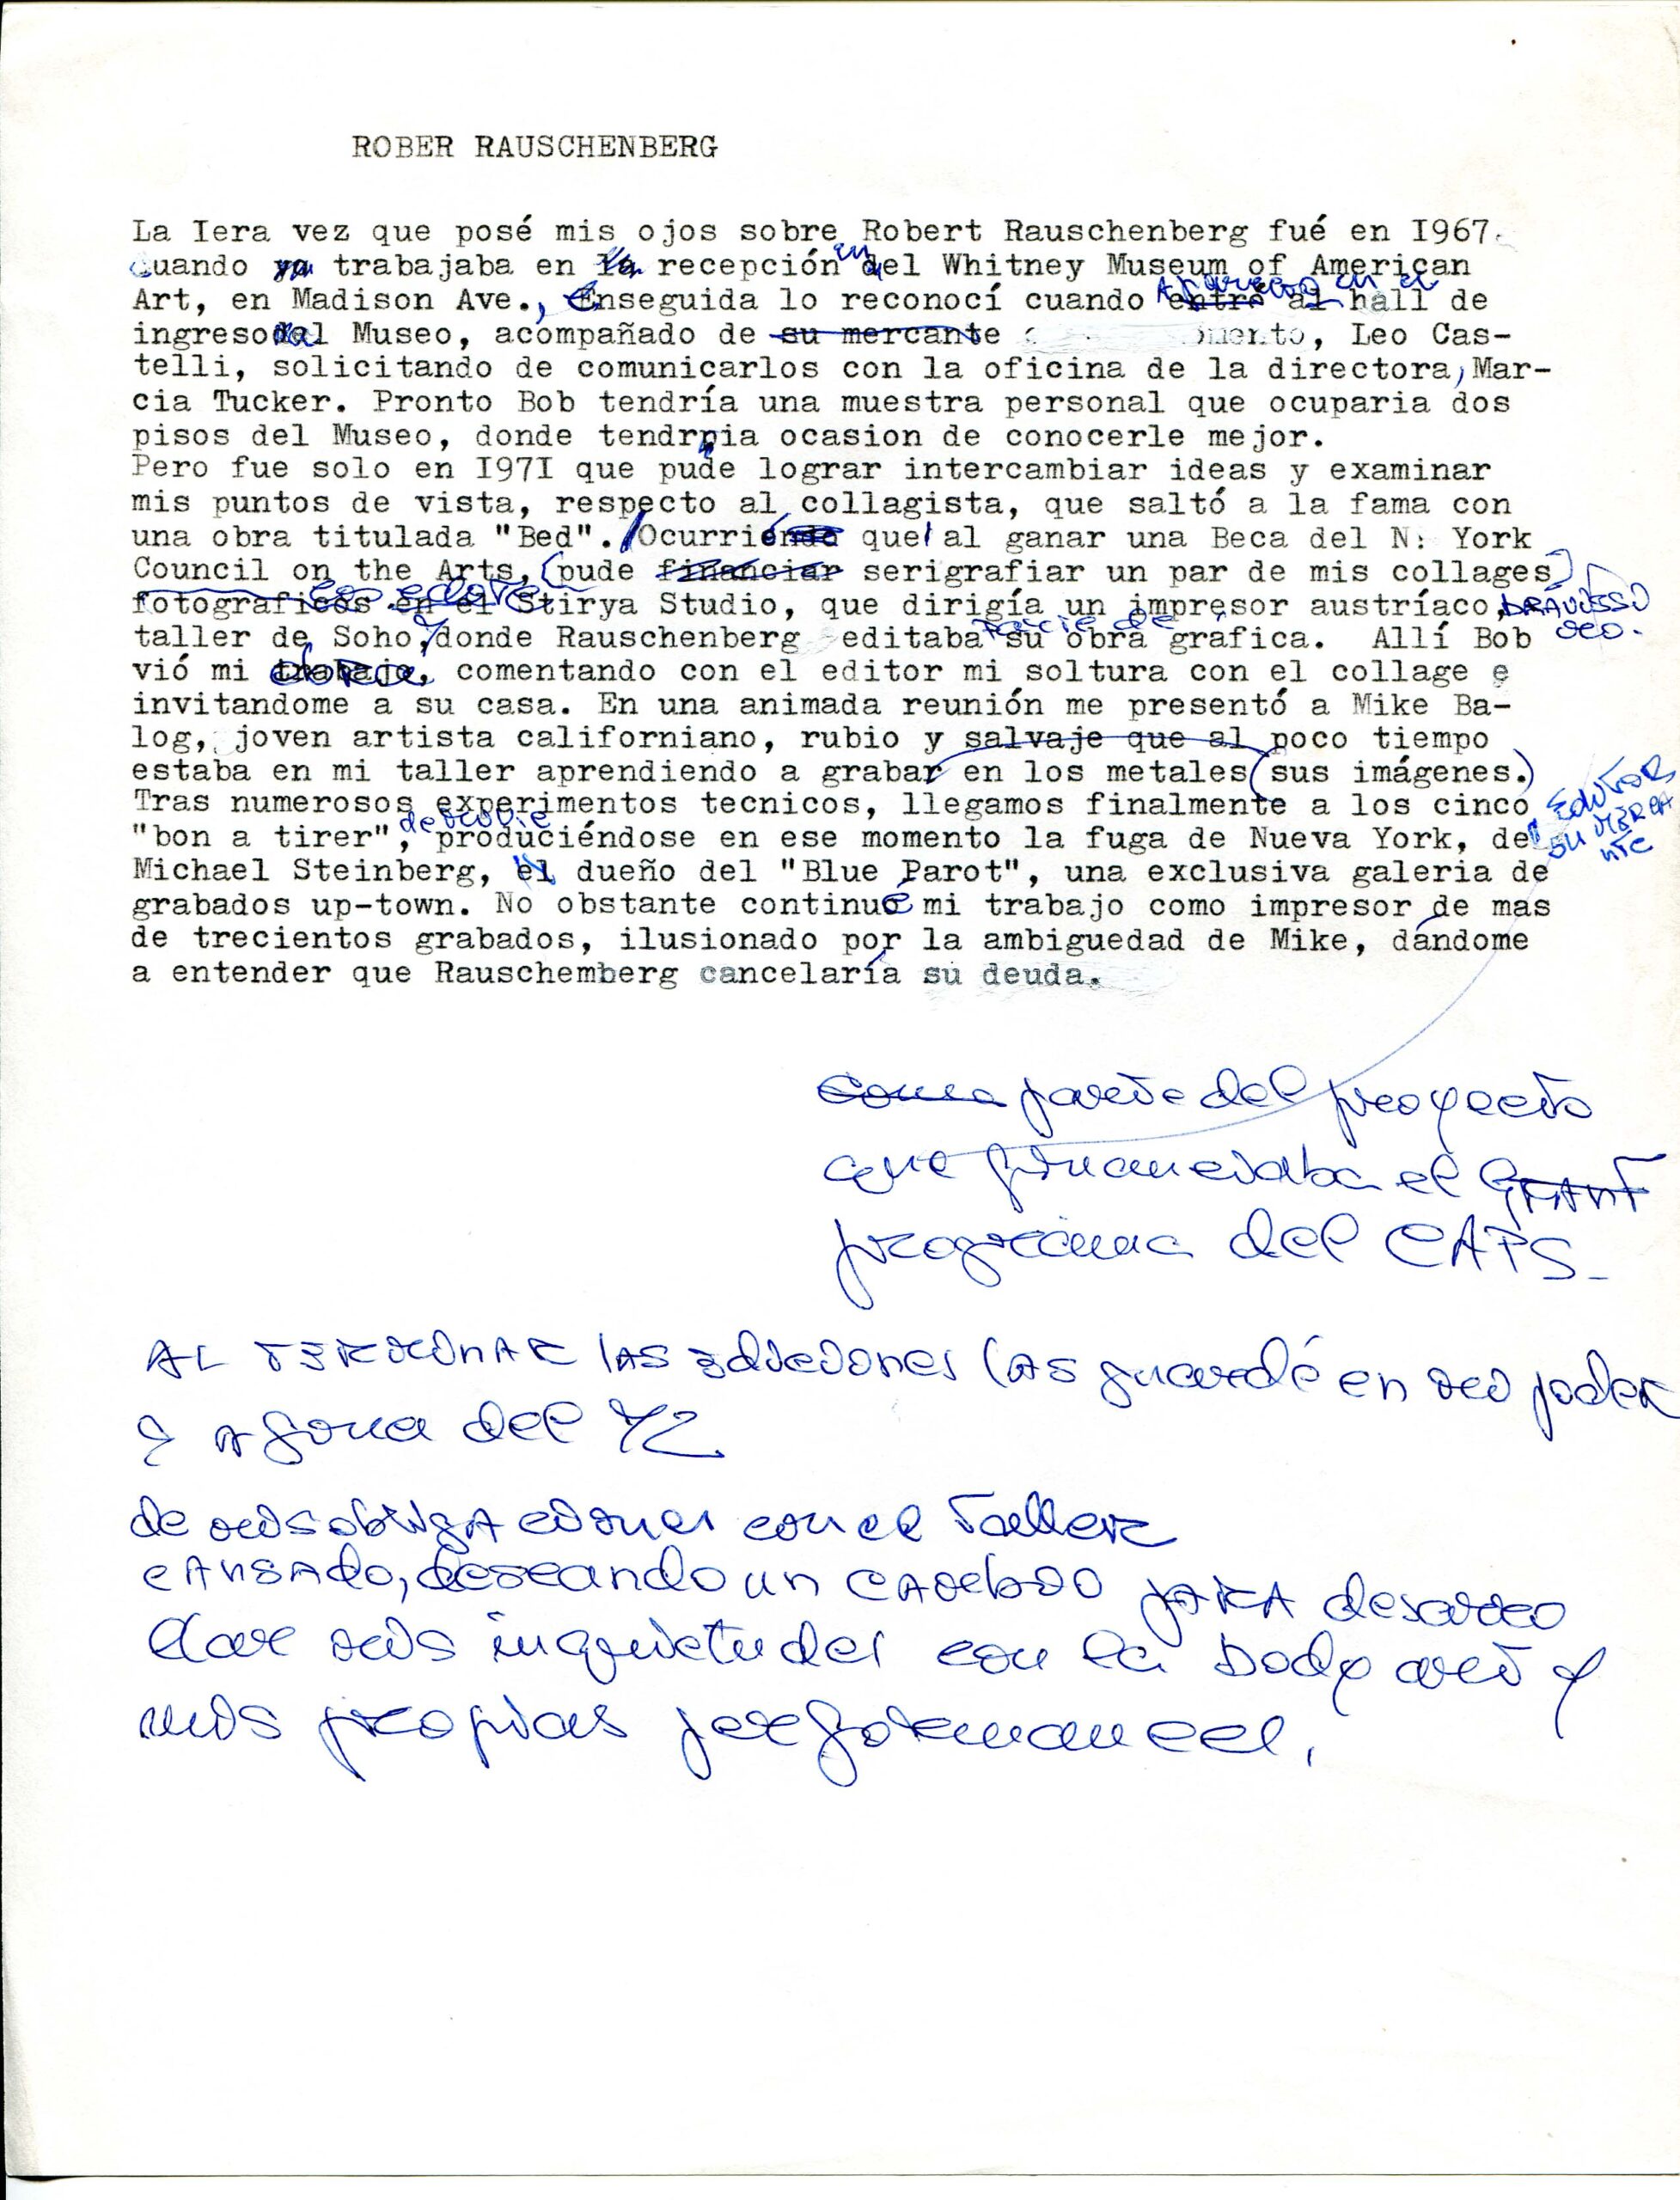 ROBER RAUSCHENBERG
La Iera vez que posé mis ojos sobre Robert Rauschenberg fué en I967.
cuando ya trabajaba en la recepción en el Whitney Museum of American
Art, en Madison Ave., Enseguida lo reconocí cuando entré al apareció en el hall de
ingreso del Museo, acompañado de su mercante mento, Leo Cas-
telli, solicitando de comunicarlos con la oficina de la directora, Mar-
cia Tucker. Pronto Bob tendría una muestra personal que ocuparia dos
pisos del Museo, donde tendrria ocasion de conocerle mejor.
Pero fue solo en I97I que pude lograr intercambiar ideas y examinar
mis puntos de vista, respecto al collagista, que saltó a la fama con
una obra titulada "Bed". Ocurrió que al ganar una Beca del N: York
Council on the Arts, (pude financiar serigrafiar un par de mis collages)
fotograficos en el Stirya Studio, que dirigía un impresor austríaco,
taller de Soho, donde Rauschenberg editaba parte de su obra gráfica. Allí Bob
vió mi trabajo obra, comentando con el editor mi soltura con el collage e
invitandome a su casa. En una animada reunión me presentó a Mike Ba-
log, joven artista californiano, rubio y salvaje que al poco tiempo
estaba en mi taller aprendiendo a grabar en los metales (sus imágenes.)
Tras numerosos experimentos tecnicos, llegamos finalmente a los cinco
"bon a tirer", produciéndose en ese momento la fuga de Nueva York, de
EDITOR
SU MERCA
NTE
Michael Steinberg, el dueño del "Blue Parot", una exclusiva galeria de
grabados up-town. No obstante continué mi trabajo como impresor de mas
de trecientos grabados, ilusionado por la ambiguedad de Mike, dándome
a entender que Rauschemberg cancelaría su deuda.
como parte del proyecto
que financiaba el GRANT
programa del CAPS.
AL TERMINAR las Ediciones las guardé en mi poder
y A fona del 72
de mis obligaciones con el Taller
cansado, deseando un cambio para desarro
llar mis inquietudes con el Body art y
mis propias performances.